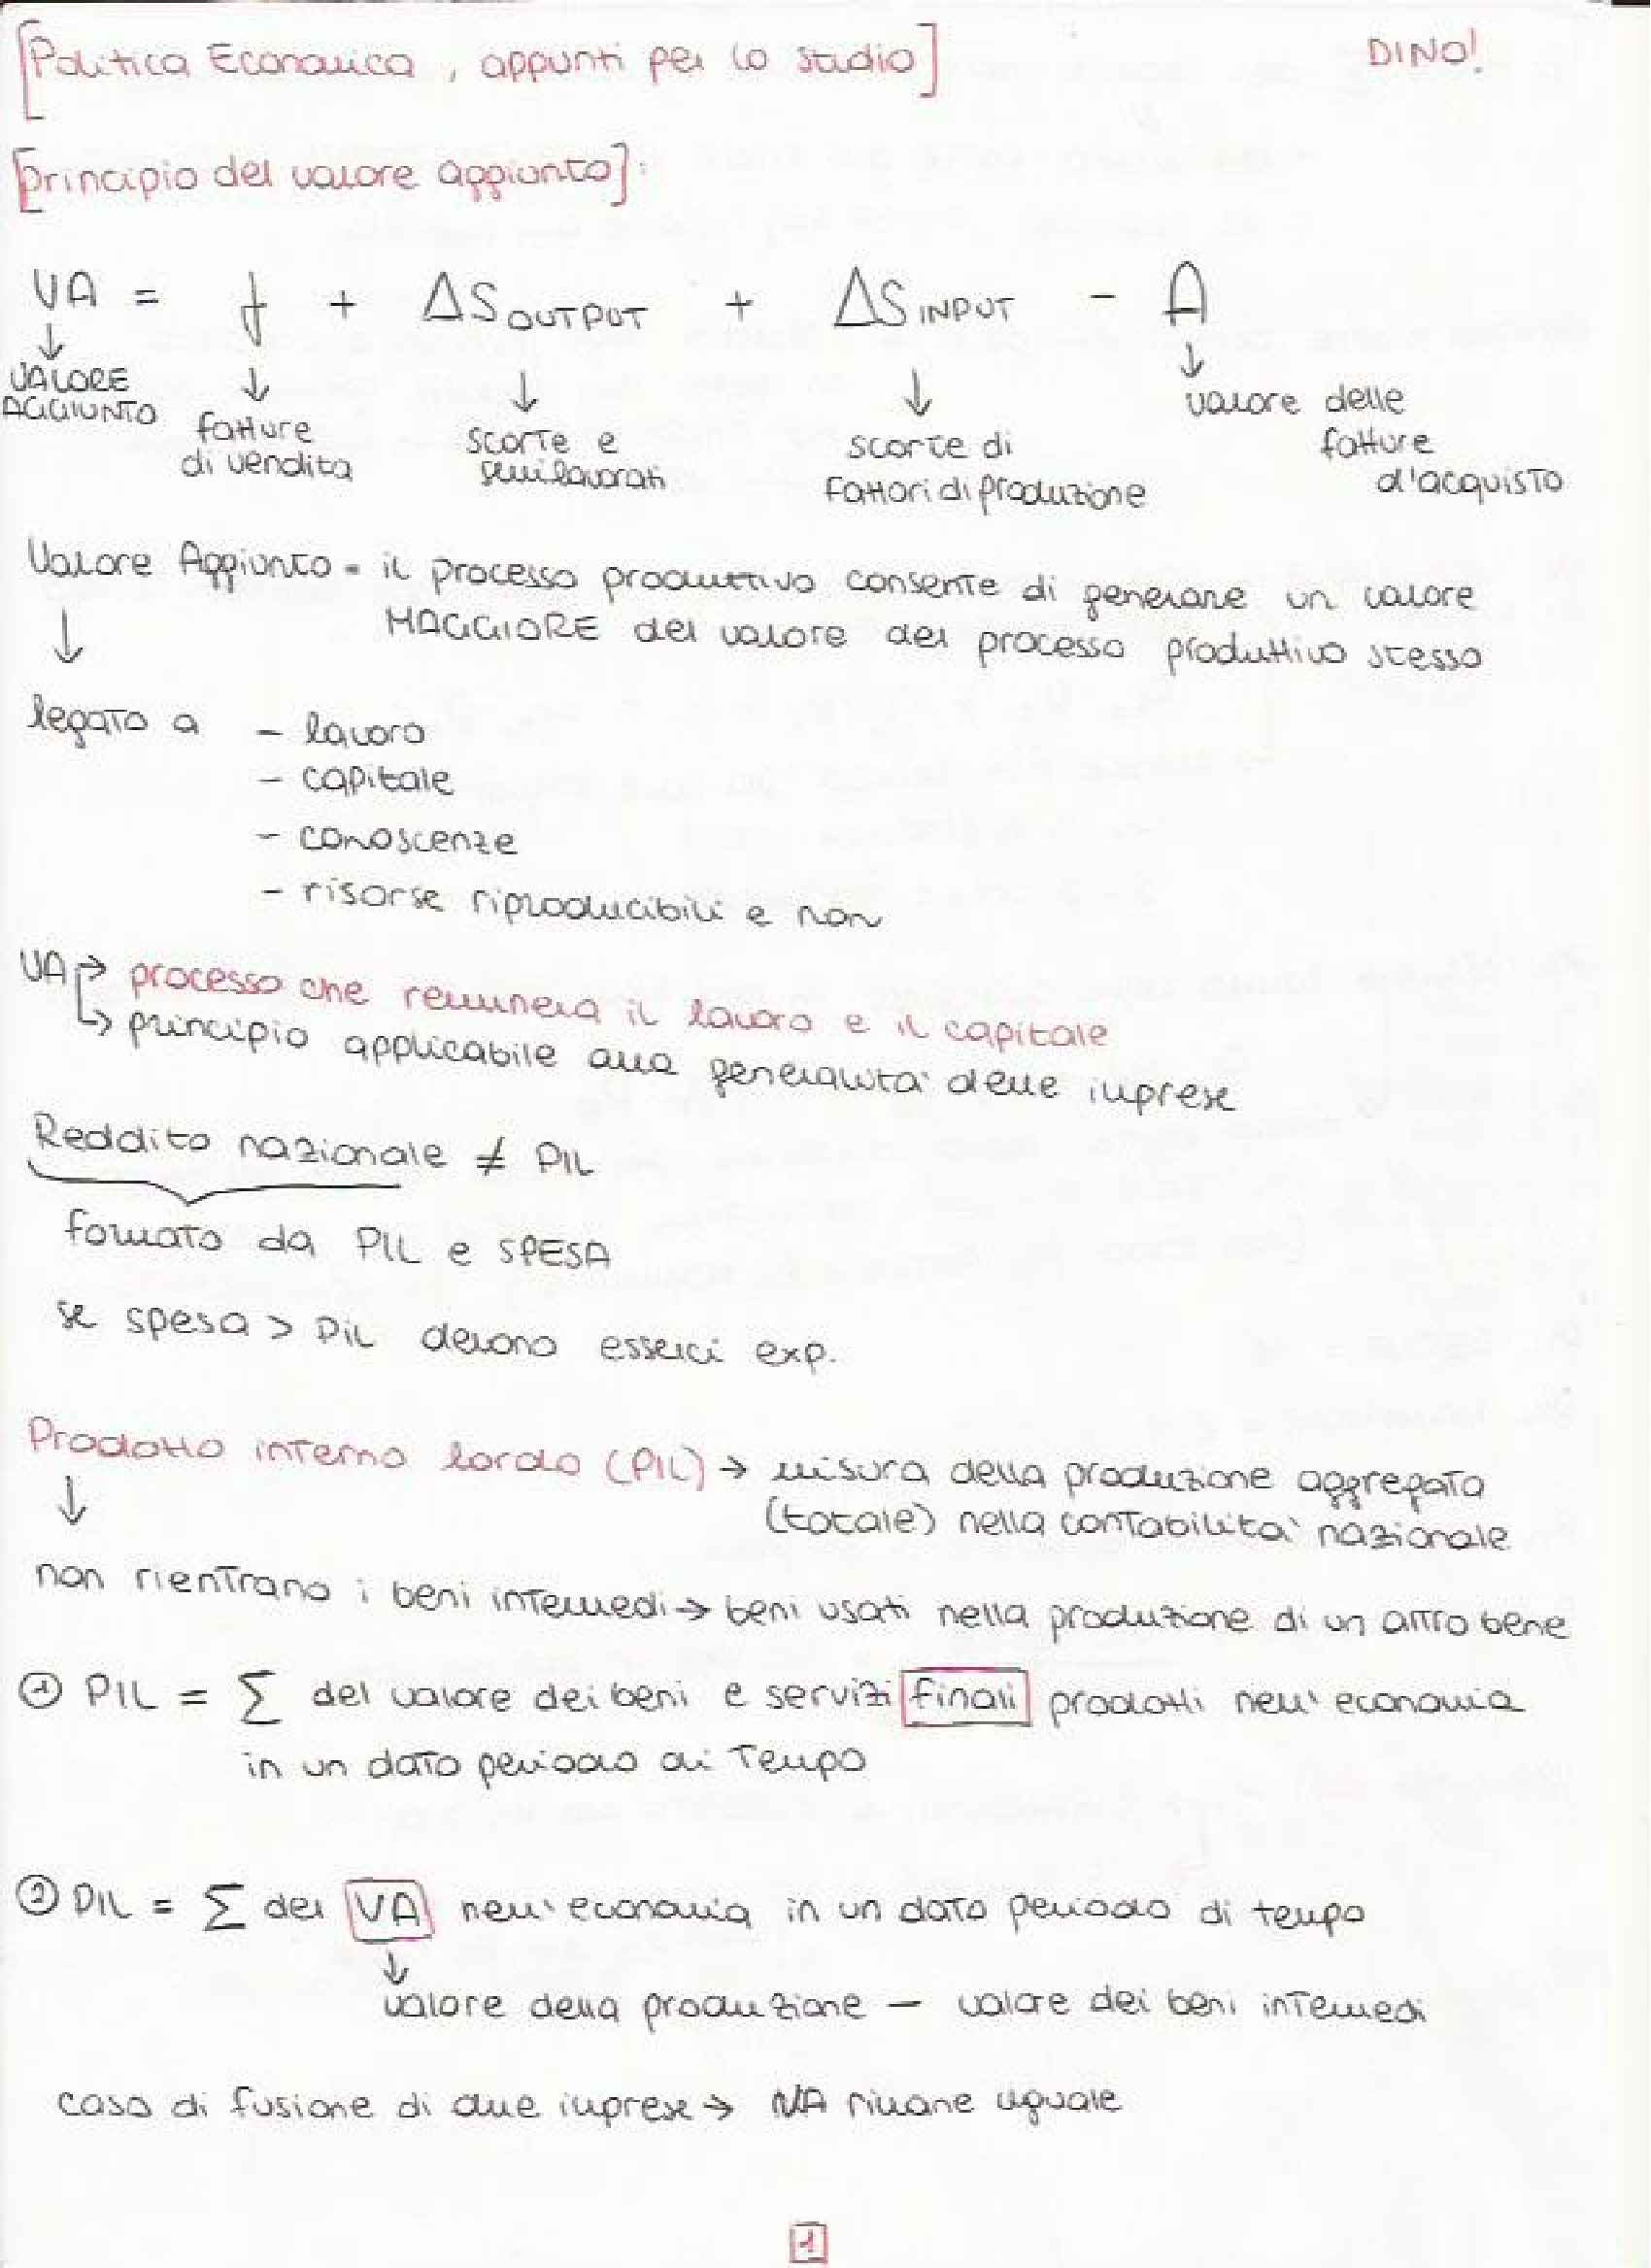 [Politica Economica, appunti per lo studio] DINO!
[principio del valore aggiunto]:
VA = f + ΔS OUTPUT + ΔS INPUT - A
↓ ↓ ↓ ↓ ↓
VALORE AGGIUNTO
fatture di vendita
scorte e semilavorati
scorte di fattori di produzione
valore delle fatture d'acquisto
Valore Aggiunto = il processo produttivo consente di generare un valore
↓ MAGGIORE del valore del processo produttivo stesso
legato a - lavoro
- capitale
- conoscenze
- risorse riproducibili e non
VA → processo che remunera il lavoro e il capitale
↳ principio applicabile alla generalità delle imprese
Reddito nazionale ≠ PIL
formato da PIL e SPESA
se spesa > PIL devono esserci exp.
Prodotto interno lordo (PIL) → misura della produzione aggregata
↓ (totale) nella contabilità nazionale
non rientrano i beni intermedi → beni usati nella produzione di un altro bene
① PIL = ∑ del valore dei beni e servizi finali prodotti nell'economia
in un dato periodo di tempo
② PIL = ∑ dei VA nell'economia in un dato periodo di tempo
↓
valore della produzione - valore dei beni intermedi
caso di fusione di due imprese → VA rimane uguale
1